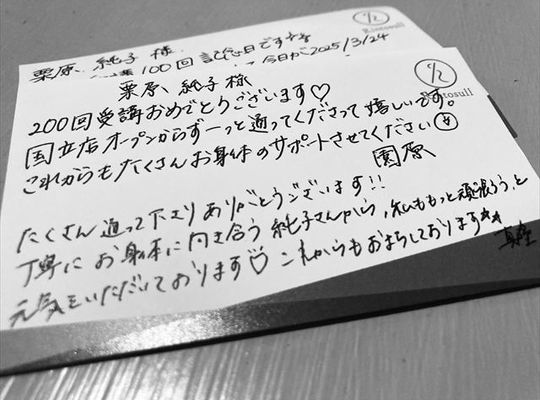 栗原 純子 様
100回 記念日です
今日が2025/3/24
Ritosull
栗原 純子 様
200回受講おめでとうございます♡
国立店オープンからずーっと通ってくださって嬉しいです。
これからもたくさんお身体のサポートさせてください
園原
たくさん通って下さりありがとうございます!!
丁寧にお身体に向き合う純子さんから、私ももっと頑張ろう、と
元気をいただいております♡ これからもお待ちしております☆☆